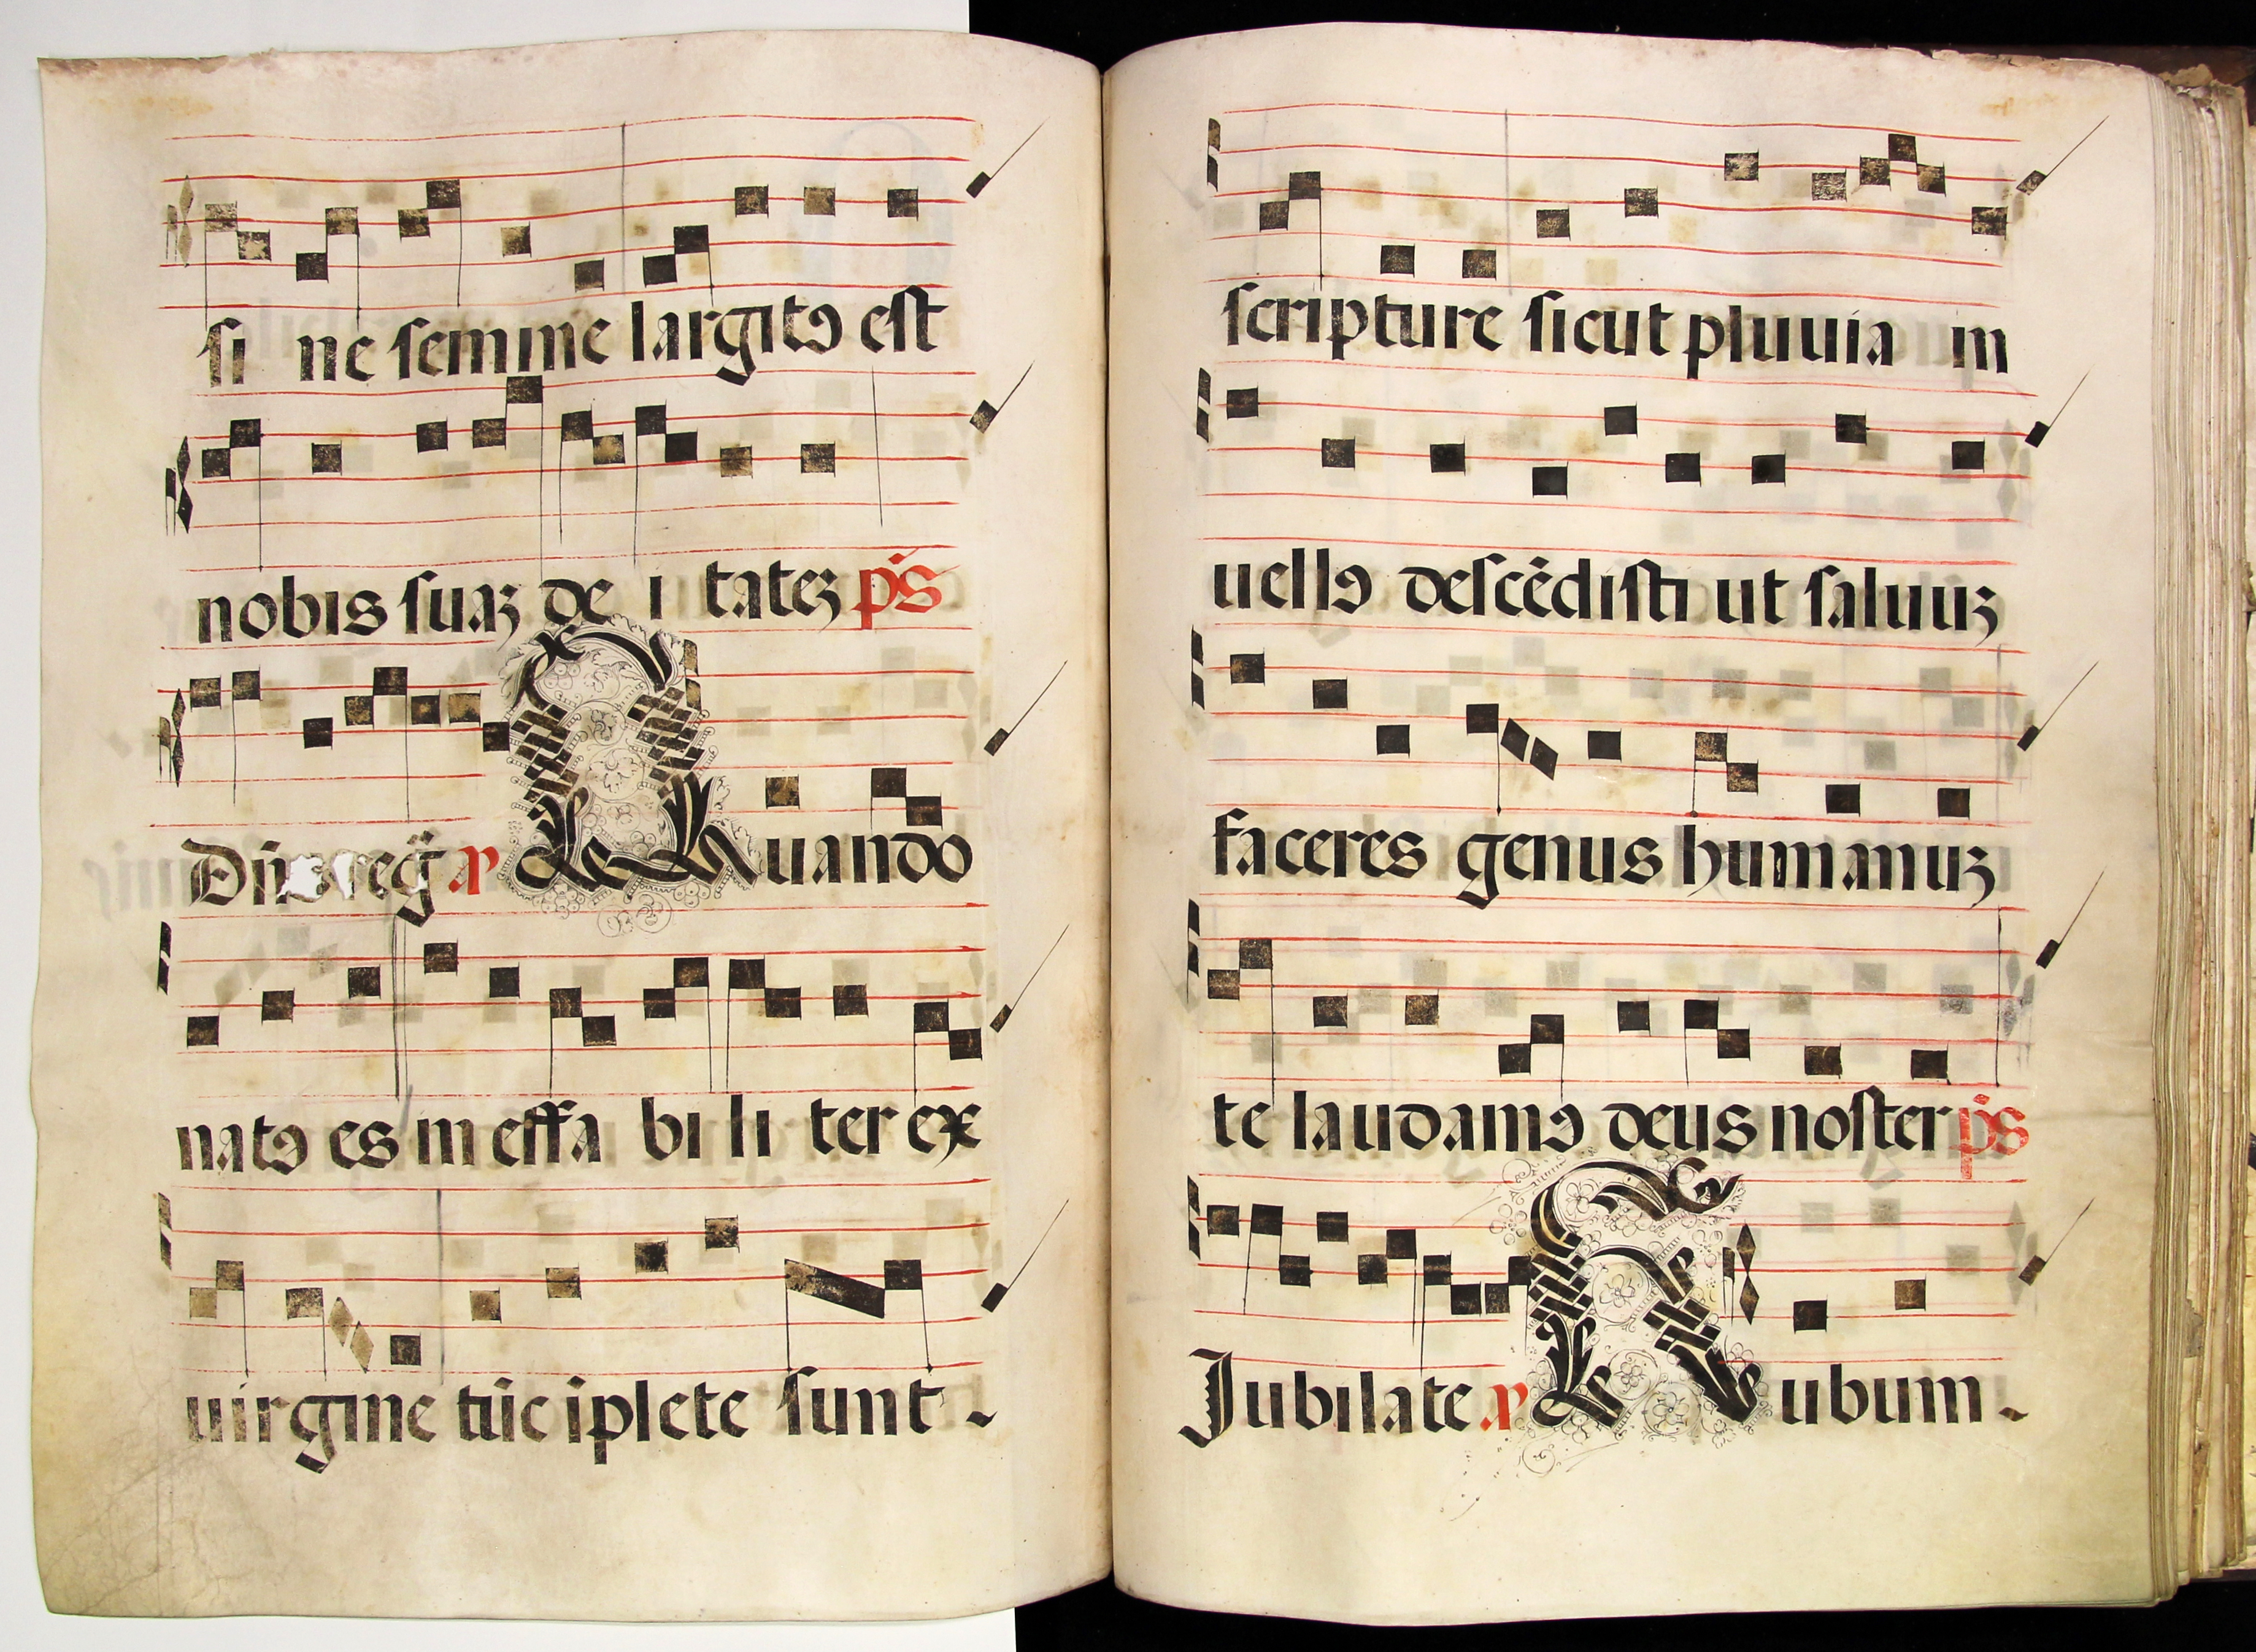 si ne semine largitꝯ est
nobis suaꝫ de i tateꝫ ps̃
Dñs reg̃ a Quando
natꝯ es in effa bi li ter ex
uirgine tũc īplete sunt
scripture sicut pluuia in
uellꝯ descẽdisti ut saluuꝫ
faceres genus humanuꝫ
te laudamꝯ deus noster ps̃
Jubilate a Rubum